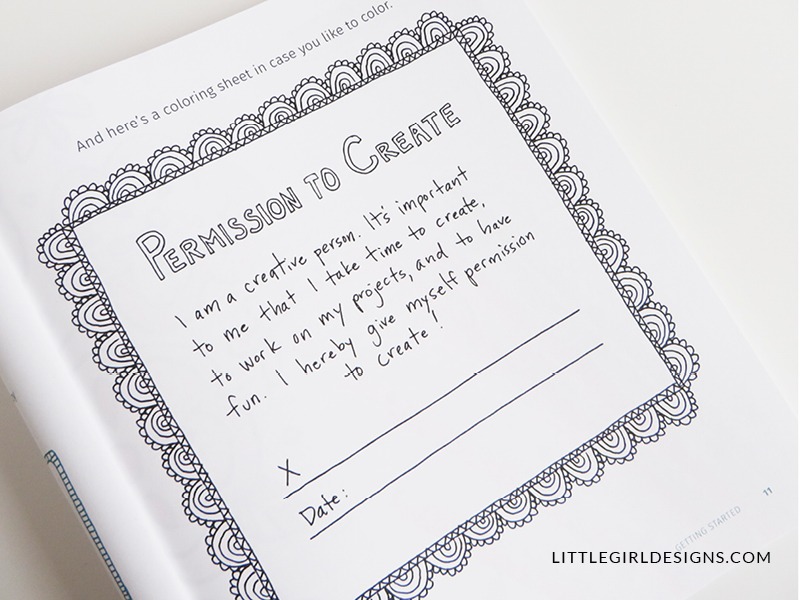 And here's a coloring sheet in case you like to color.
PERMISSION TO CREATE
I am a creative person. It's important
to me that I take time to create,
to work on my projects, and to have
fun. I hereby give myself permission
to create!
X
Date:
GETTING STARTED 11
LITTLEGIRLDESIGNS.COM